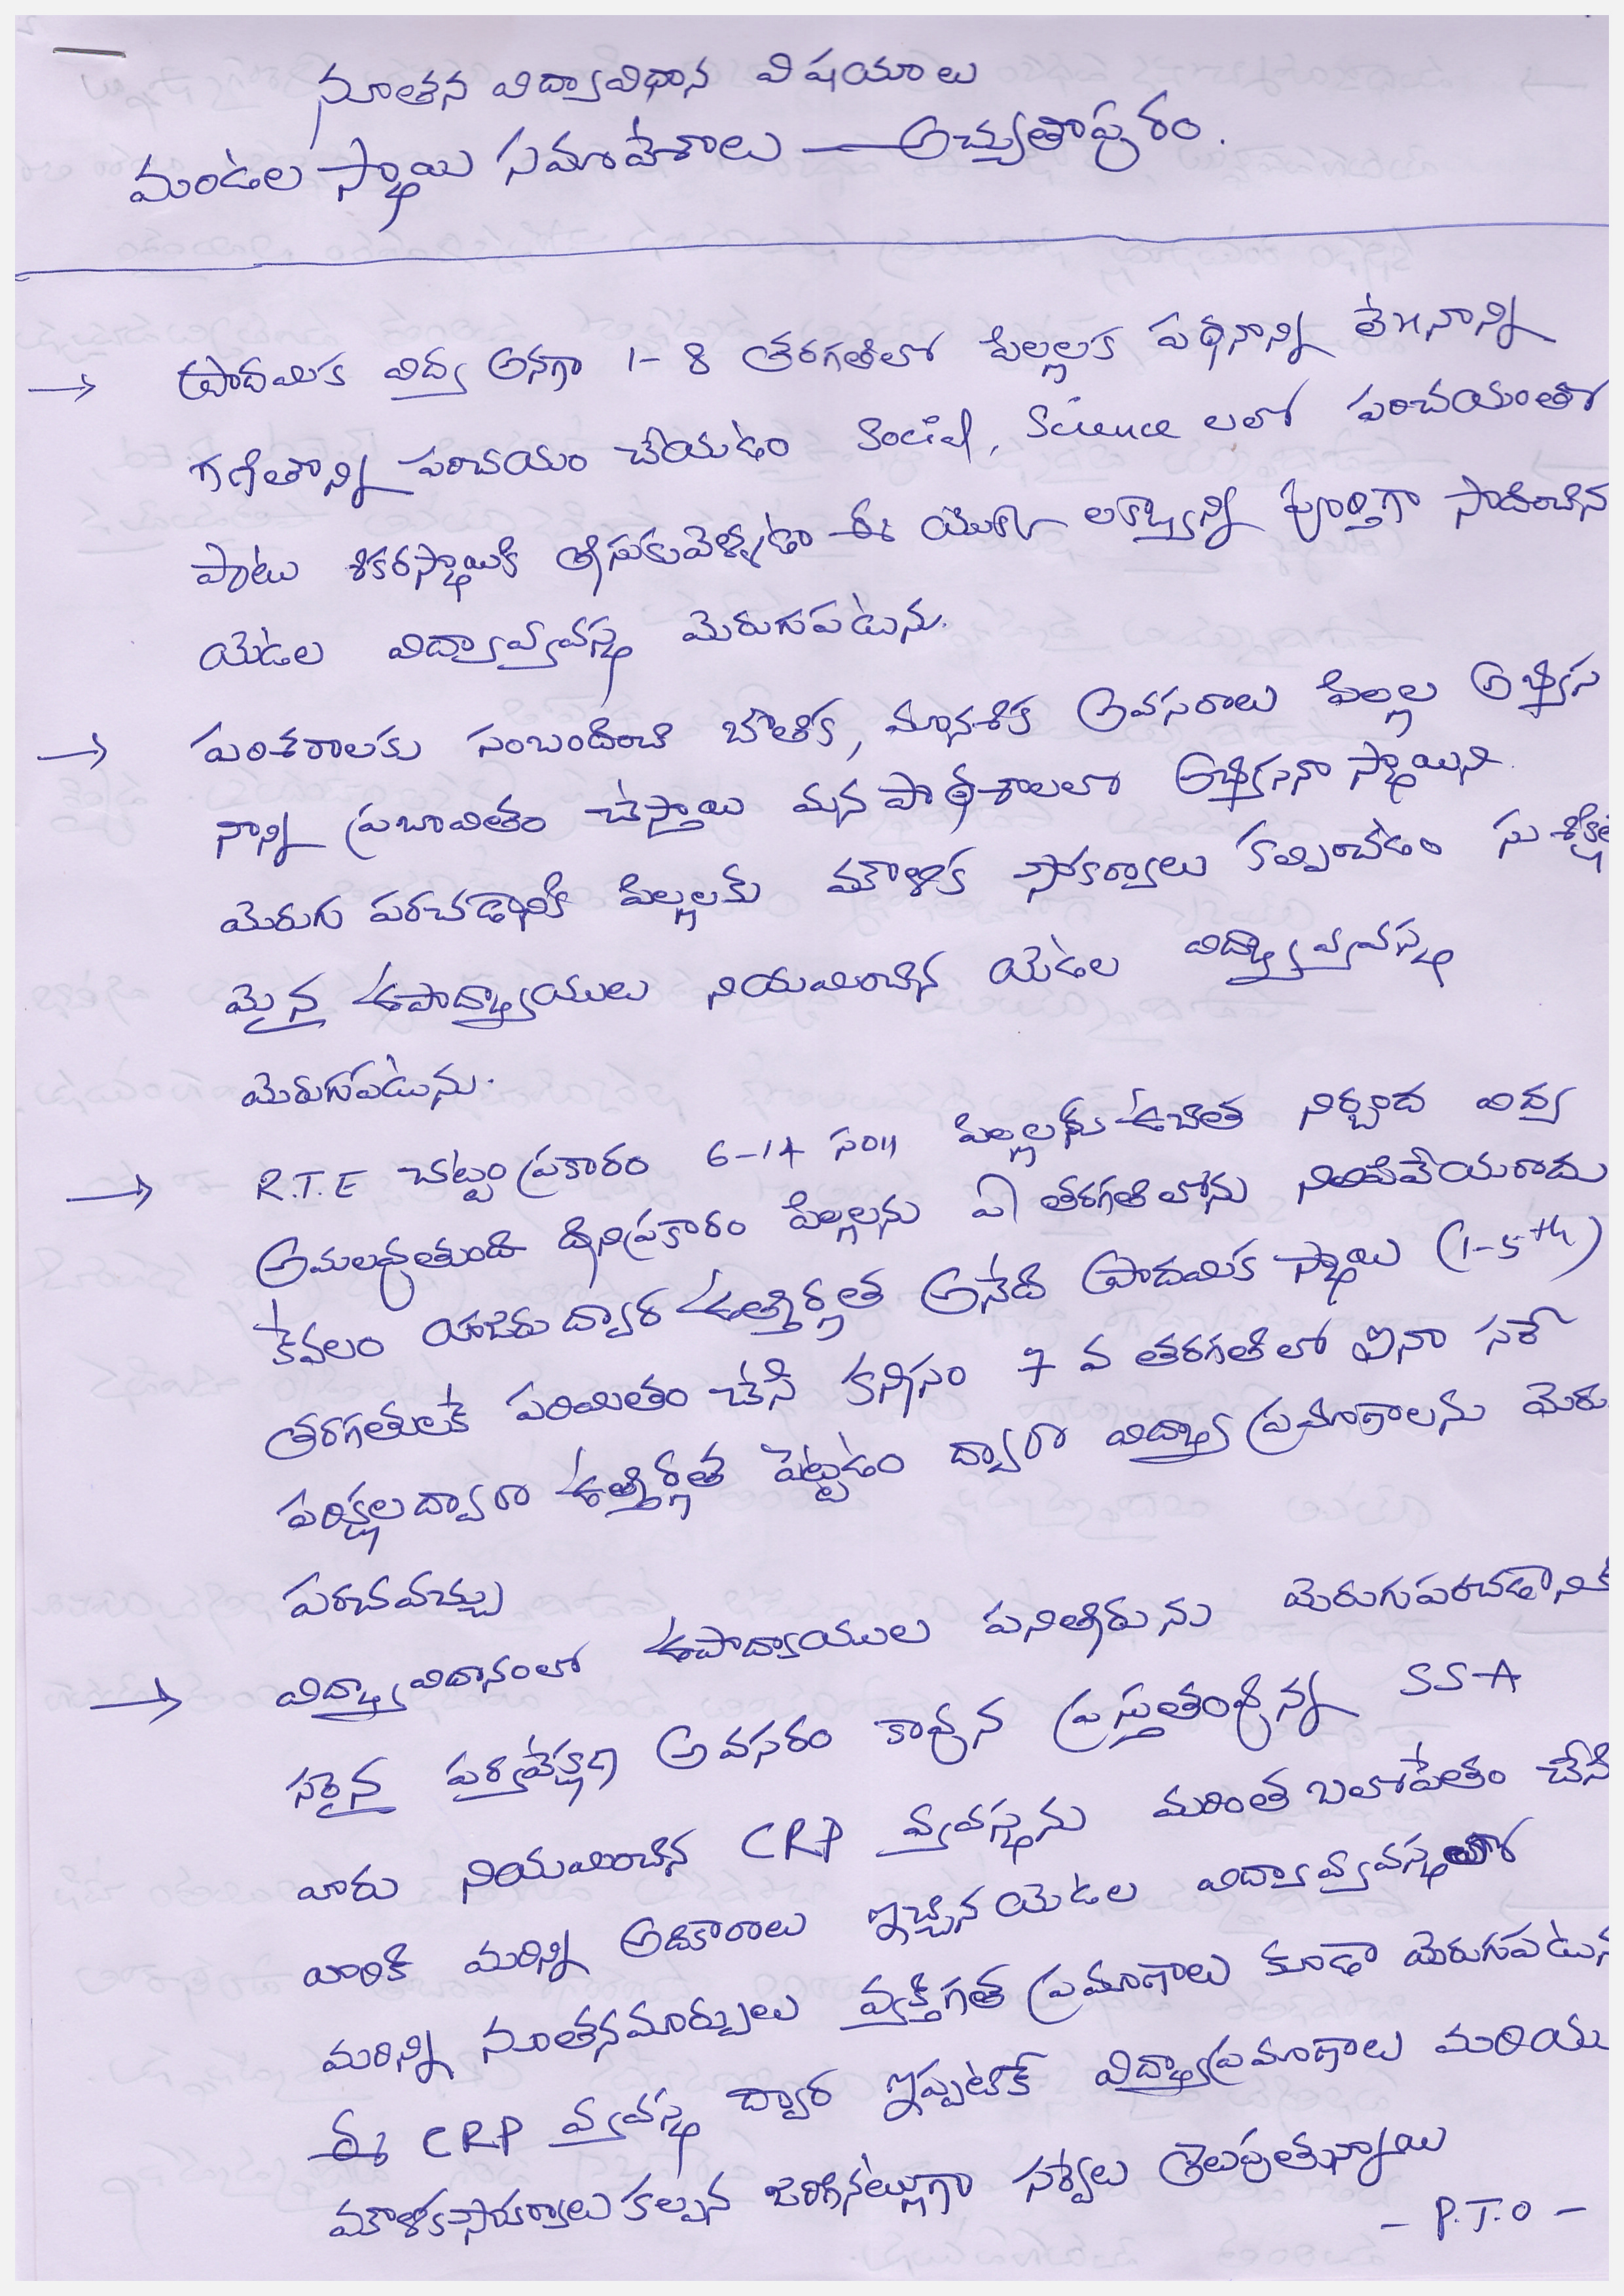 నూతన విద్యావిధాన విషయాలు
మండల స్థాయి సమావేశాలు — అచ్యుతాపురం.
→ ప్రాదమిక విద్య అనగా 1-8 తరగతిలో పిల్లలక పఠనాన్ని లేఖనాన్ని
గణితాన్ని పరిచయం చేయడం Social, Science లలో పరిచయంతో
పాటు శికరస్థాయికి తీసుకువెళ్ళడం ఈ యొక్క లక్ష్యాన్ని పూర్తిగా సాదించిన
యెడల విద్యావ్యవస్థ మెరుగుపడును.
→ పరిశరాలకు సంబందించి బౌతిక, మానశిక అవసరాలు పిల్లల అభ్యస
నాన్ని ప్రబావితం చేస్తాయి మన పాఠశాలలలో అభ్యసనా స్థాయిని
మెరుగు పరచడానికి పిల్లలకు మౌళిక సౌకర్యాలు కల్పించడం సుశిక్షిత
మైన ఉపాద్యాయులు నియమించిన యెడల విద్యావ్యవస్థ
మెరుగుపడును.
→ R.T.E చట్టం ప్రకారం 6-14 సం॥ పిల్లలకు ఉచిత నిర్బంద విద్య
అమలవుతుంది దీనిప్రకారం పిల్లలను ఏ తరగతిలోను నిలిపివేయరాదు
కేవలం హాజరు ద్వార ఉత్తీర్ణత అనేది ప్రాదమిక స్థాయి (1-5th)
తరగతులకే పరిమితం చేసి కనీసం 7 వ తరగతిలో ఐనా సరే
పరీక్షల ద్వారా ఉత్తీర్ణత పెట్టడం ద్వారా విద్యా ప్రమాణాలను మెరు
పరచవచ్చు
→ విద్యావిదానంలో ఉపాద్యాయుల పనితీరును మెరుగుపరచడానికి
సరైన పర్యవేక్షణ అవసరం కావున ప్రస్తుతం ఉన్న SSA
వారు నియమించిన CRP వ్యవస్థను మరింత బలోపేతం చేసి
వారికి మరిన్ని అదికారాలు ఇచ్చిన యెడల విద్యావ్యవస్థలో
మరిన్ని నూతనమార్పులు వ్యక్తిగత ప్రమాణాలు కూడా మెరుగుపడును
ఈ CRP వ్యవస్థ ద్వార ఇప్పటికే విద్యాప్రమాణాలు మరియు
మౌళికసౌకర్యాలు కల్పన జరిగినట్లుగా సర్వేలు తెలుపుతున్నాయి
- P.T.O -